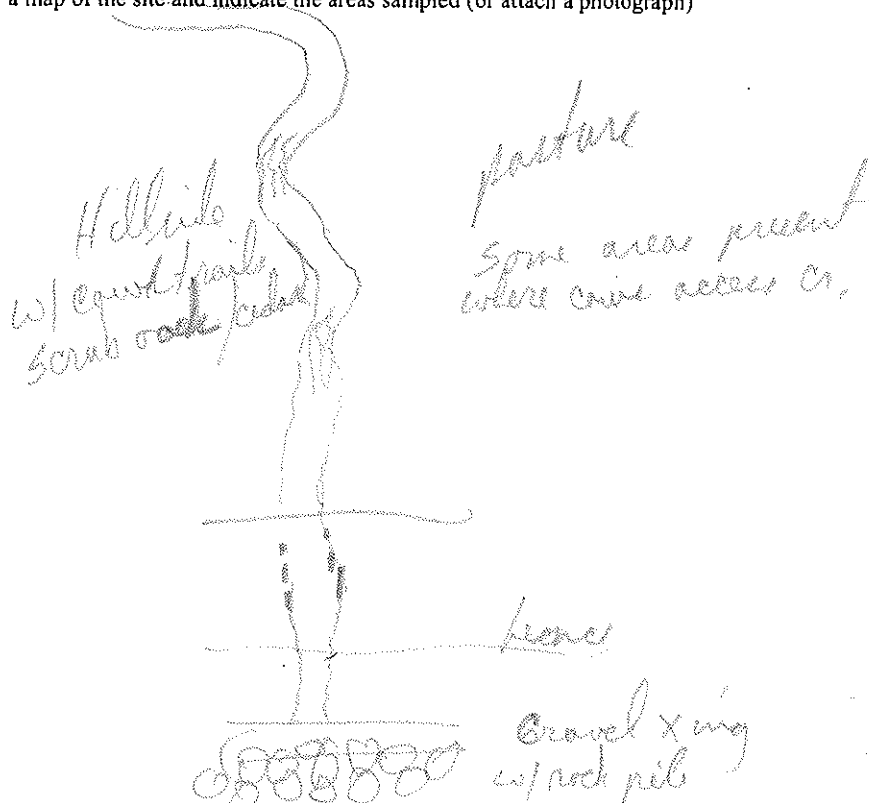 a map of the site and indicate the areas sampled (or attach a photograph)
pasture
Hillside
w/ cow trails
scrub oak/cedar
some areas present
where cows access cr.
fence
Gravel Xing
w/ rock pile